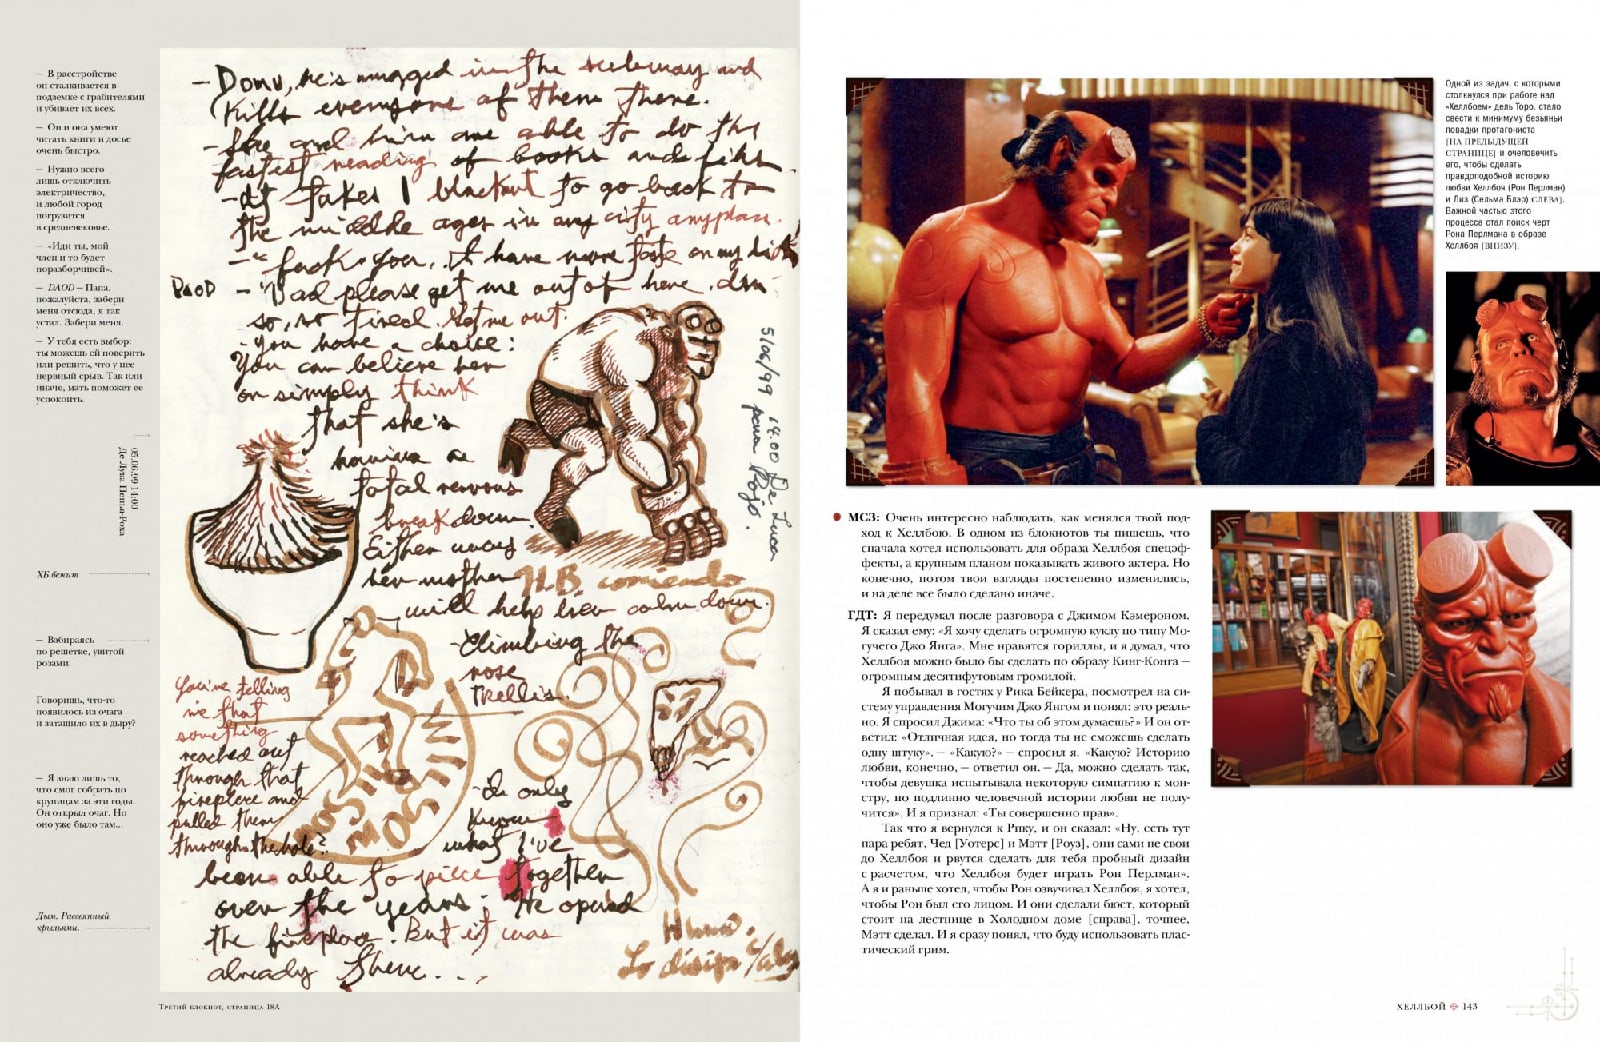 — В расстройстве
он сталкивается в
подземке с грабителями
и убивает их всех.
— Он и она умеют
читать книги и досье
очень быстро.
— Нужно всего
лишь отключить
электричество,
и любой город
погрузится
в средневековье.
— «Иди ты, мой
член и то будет
поразборчивей».
— DAOD — Папа,
пожалуйста, забери
меня отсюда, я так
устал. Забери меня.
— У тебя есть выбор:
ты можешь ей поверить
или решить, что у нее
нервный срыв. Так или
иначе, мать поможет ее
успокоить.
05.06.99 14:00
Де Лука, Пенья-Роха
ХБ бежит
— Взбираясь
по решетке, увитой
розами.
Говоришь, что-то
появилось из очага
и затащило их в дыру?
— Я знаю лишь то,
что смог собрать по
крупицам за эти годы.
Он открыл очаг. Но
оно уже было там...
Дым. Рассеянный
крыльями.
he's mugged in the subway and
kills everyone of them there.
- She and him are able to do the
fastest reading of books and
- It takes 1 blackout to go back to
the middle ages in any city anyplace.
- "fuck you, I have more taste on my
DAOD - "Dad please get me out of here. I'm
so, so tired. Get me out.
- You have a choice:
You can believe her
or simply think
that she's
having a
total nervous
breakdown.
Either way
her mother
will help her calm down.
5/06/99 14.00 De Luca
H.B. corriendo
- Climbing the
rose
trellis.
You're telling
me that
something
reached out
through that
fireplace and
pulled them
through the hole?
- I only
know
what I've
been able to piece together
over the years. He opened
the fireplace. But it was
already there...
Humo.
Lo disipa
Третий блокнот, страница 18А
Одной из задач, с которыми
столкнулся при работе над
«Хеллбоем» дель Торо, стало
свести к минимуму обезьяньи
повадки протагониста
[НА ПРЕДЫДУЩЕЙ
СТРАНИЦЕ] и очеловечить
его, чтобы сделать
правдоподобной историю
любви Хеллбоя (Рон Перлман)
и Лиз (Сельма Блэр) [СЛЕВА].
Важной частью этого
процесса стал поиск черт
Рона Перлмана в образе
Хеллбоя [ВНИЗУ].
МСЗ: Очень интересно наблюдать, как менялся твой под-
ход к Хеллбою. В одном из блокнотов ты пишешь, что
сначала хотел использовать для образа Хеллбоя спецэф-
фекты, а крупным планом показывать живого актера. Но
конечно, потом твои взгляды постепенно изменились,
и на деле все было сделано иначе.
ГДТ: Я передумал после разговора с Джимом Кэмероном.
Я сказал ему: «Я хочу сделать огромную куклу по типу Мо-
гучего Джо Янга». Мне нравятся гориллы, и я думал, что
Хеллбоя можно было бы сделать по образу Кинг-Конга —
огромным десятифутовым громилой.
Я побывал в гостях у Рика Бейкера, посмотрел на си-
стему управления Могучим Джо Янгом и понял: это реаль-
но. Я спросил Джима: «Что ты об этом думаешь?» И он от-
ветил: «Отличная идея, но тогда ты не сможешь сделать
одну штуку». — «Какую?» — спросил я. «Какую? Историю
любви, конечно, — ответил он. — Да, можно сделать так,
чтобы девушка испытывала некоторую симпатию к мон-
стру, но подлинно человечной истории любви не полу-
чится». И я признал: «Ты совершенно прав».
Так что я вернулся к Рику, и он сказал: «Ну, есть тут
пара ребят, Чед [Уотерс] и Мэтт [Роуз], они сами не свои
до Хеллбоя и рвутся сделать для тебя пробный дизайн
с расчетом, что Хеллбоя будет играть Рон Перлман».
А я и раньше хотел, чтобы Рон озвучивал Хеллбоя, я хотел,
чтобы Рон был его лицом. И они сделали бюст, который
стоит на лестнице в Холодном доме [справа], точнее,
Мэтт сделал. И я сразу понял, что буду использовать плас-
тический грим.
ХЕЛЛБОЙ 143